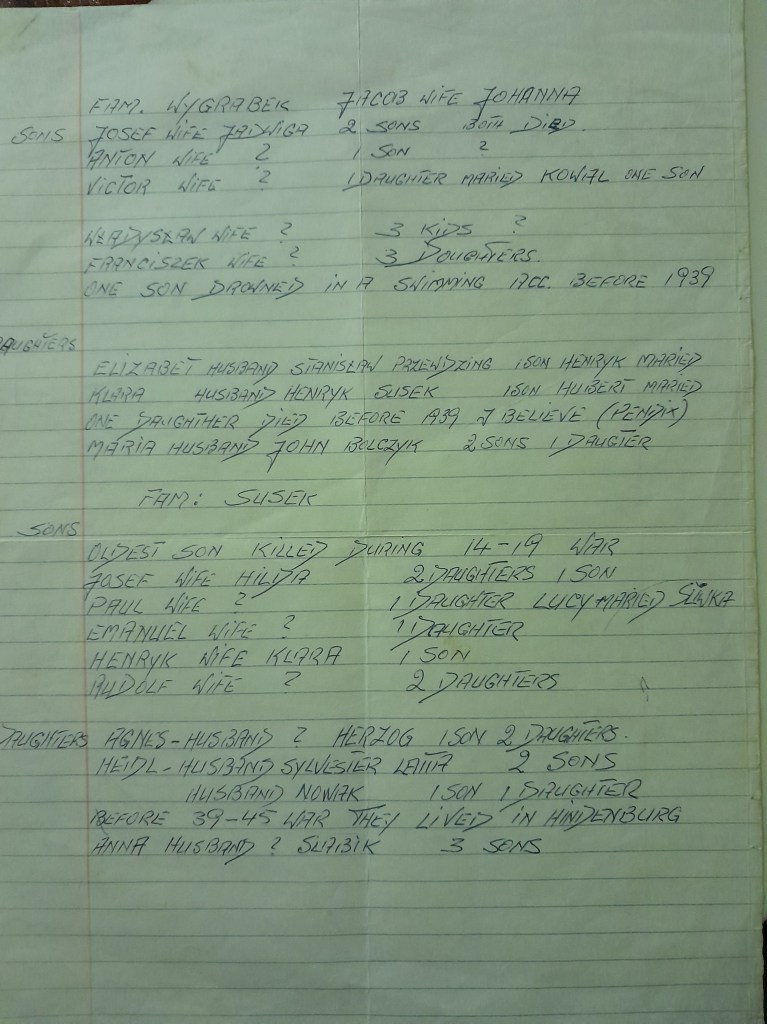 FAM. WYGRABEK JACOB WIFE JOHANNA
SONS JOSEF WIFE JADWIGA 2 SONS BOTH DIED.
ANTON WIFE ? 1 SON ?
VICTOR WIFE ? 1 DAUGHTER MARIED KOWAL ONE SON
WŁADYSŁAW WIFE ? 3 KIDS ?
FRANCISZEK WIFE ? 3 DOUGHTERS.
ONE SON DROWNED IN A SWIMMING ACC. BEFORE 1939
DAUGHTERS
ELIZABET HUSBAND STANISŁAW PRZEWDZING 1 SON HENRYK MARIED
KLARA HUSBAND HENRYK SUSEK 1 SON HUIBERT MARIED
ONE DAUGHTHER DIED BEFORE 1939 I BELIEVE (PENDIX)
MARIA HUSBAND JOHN BOLCZYK 2 SONS 1 DAUGTER
FAM: SUSEK
SONS
OLDEST SON KILLED DURING 14-19 WAR
JOSEF WIFE HILDA 2 DAUGHTERS 1 SON
PAUL WIFE ? 1 DAUGHTER LUCY MARIED SLIWKA
EMANUEL WIFE ? 1 DAUGHTER
HENRYK WIFE KLARA 1 SON
RUDOLF WIFE ? 2 DAUGHTERS
DAUGHTERS AGNES-HUSBAND ? HERZOG 1 SON 2 DAUGHTERS.
HEIDL-HUSBAND SYLVESTER LATTA 2 SONS
HUSBAND NOWAK 1 SON 1 DAUGHTER
BEFORE 39-45 WAR THEY LIVED IN HINDENBURG
ANNA HUSBAND ? SLABIK 3 SONS